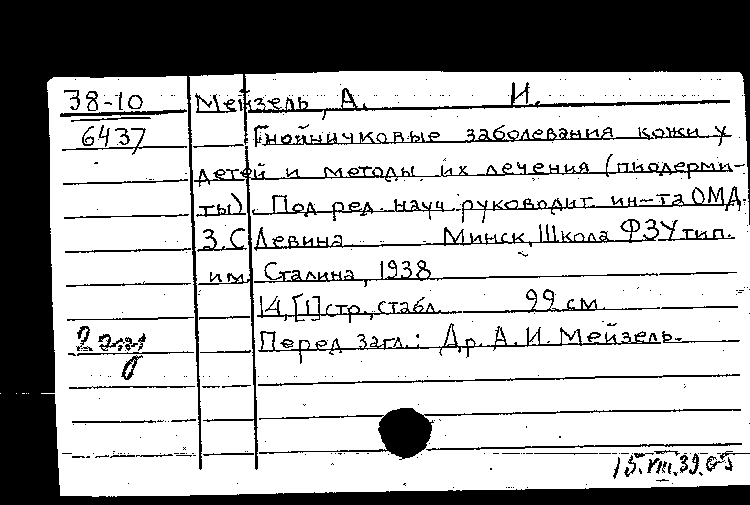 38-10 Мейзель, А. И.
6437 Гнойничковые заболевания кожи у
детей и методы их лечения (пиодерми-
ты). Под ред. науч. руководит. ин-та ОМД.
З. С. Левина Минск, Школа ФЗУ тип.
им. Сталина, 1938
14, [1] стр., с табл. 22 см.
2 экз Перед загл.: Др. А. И. Мейзель.
15.VIII.39.